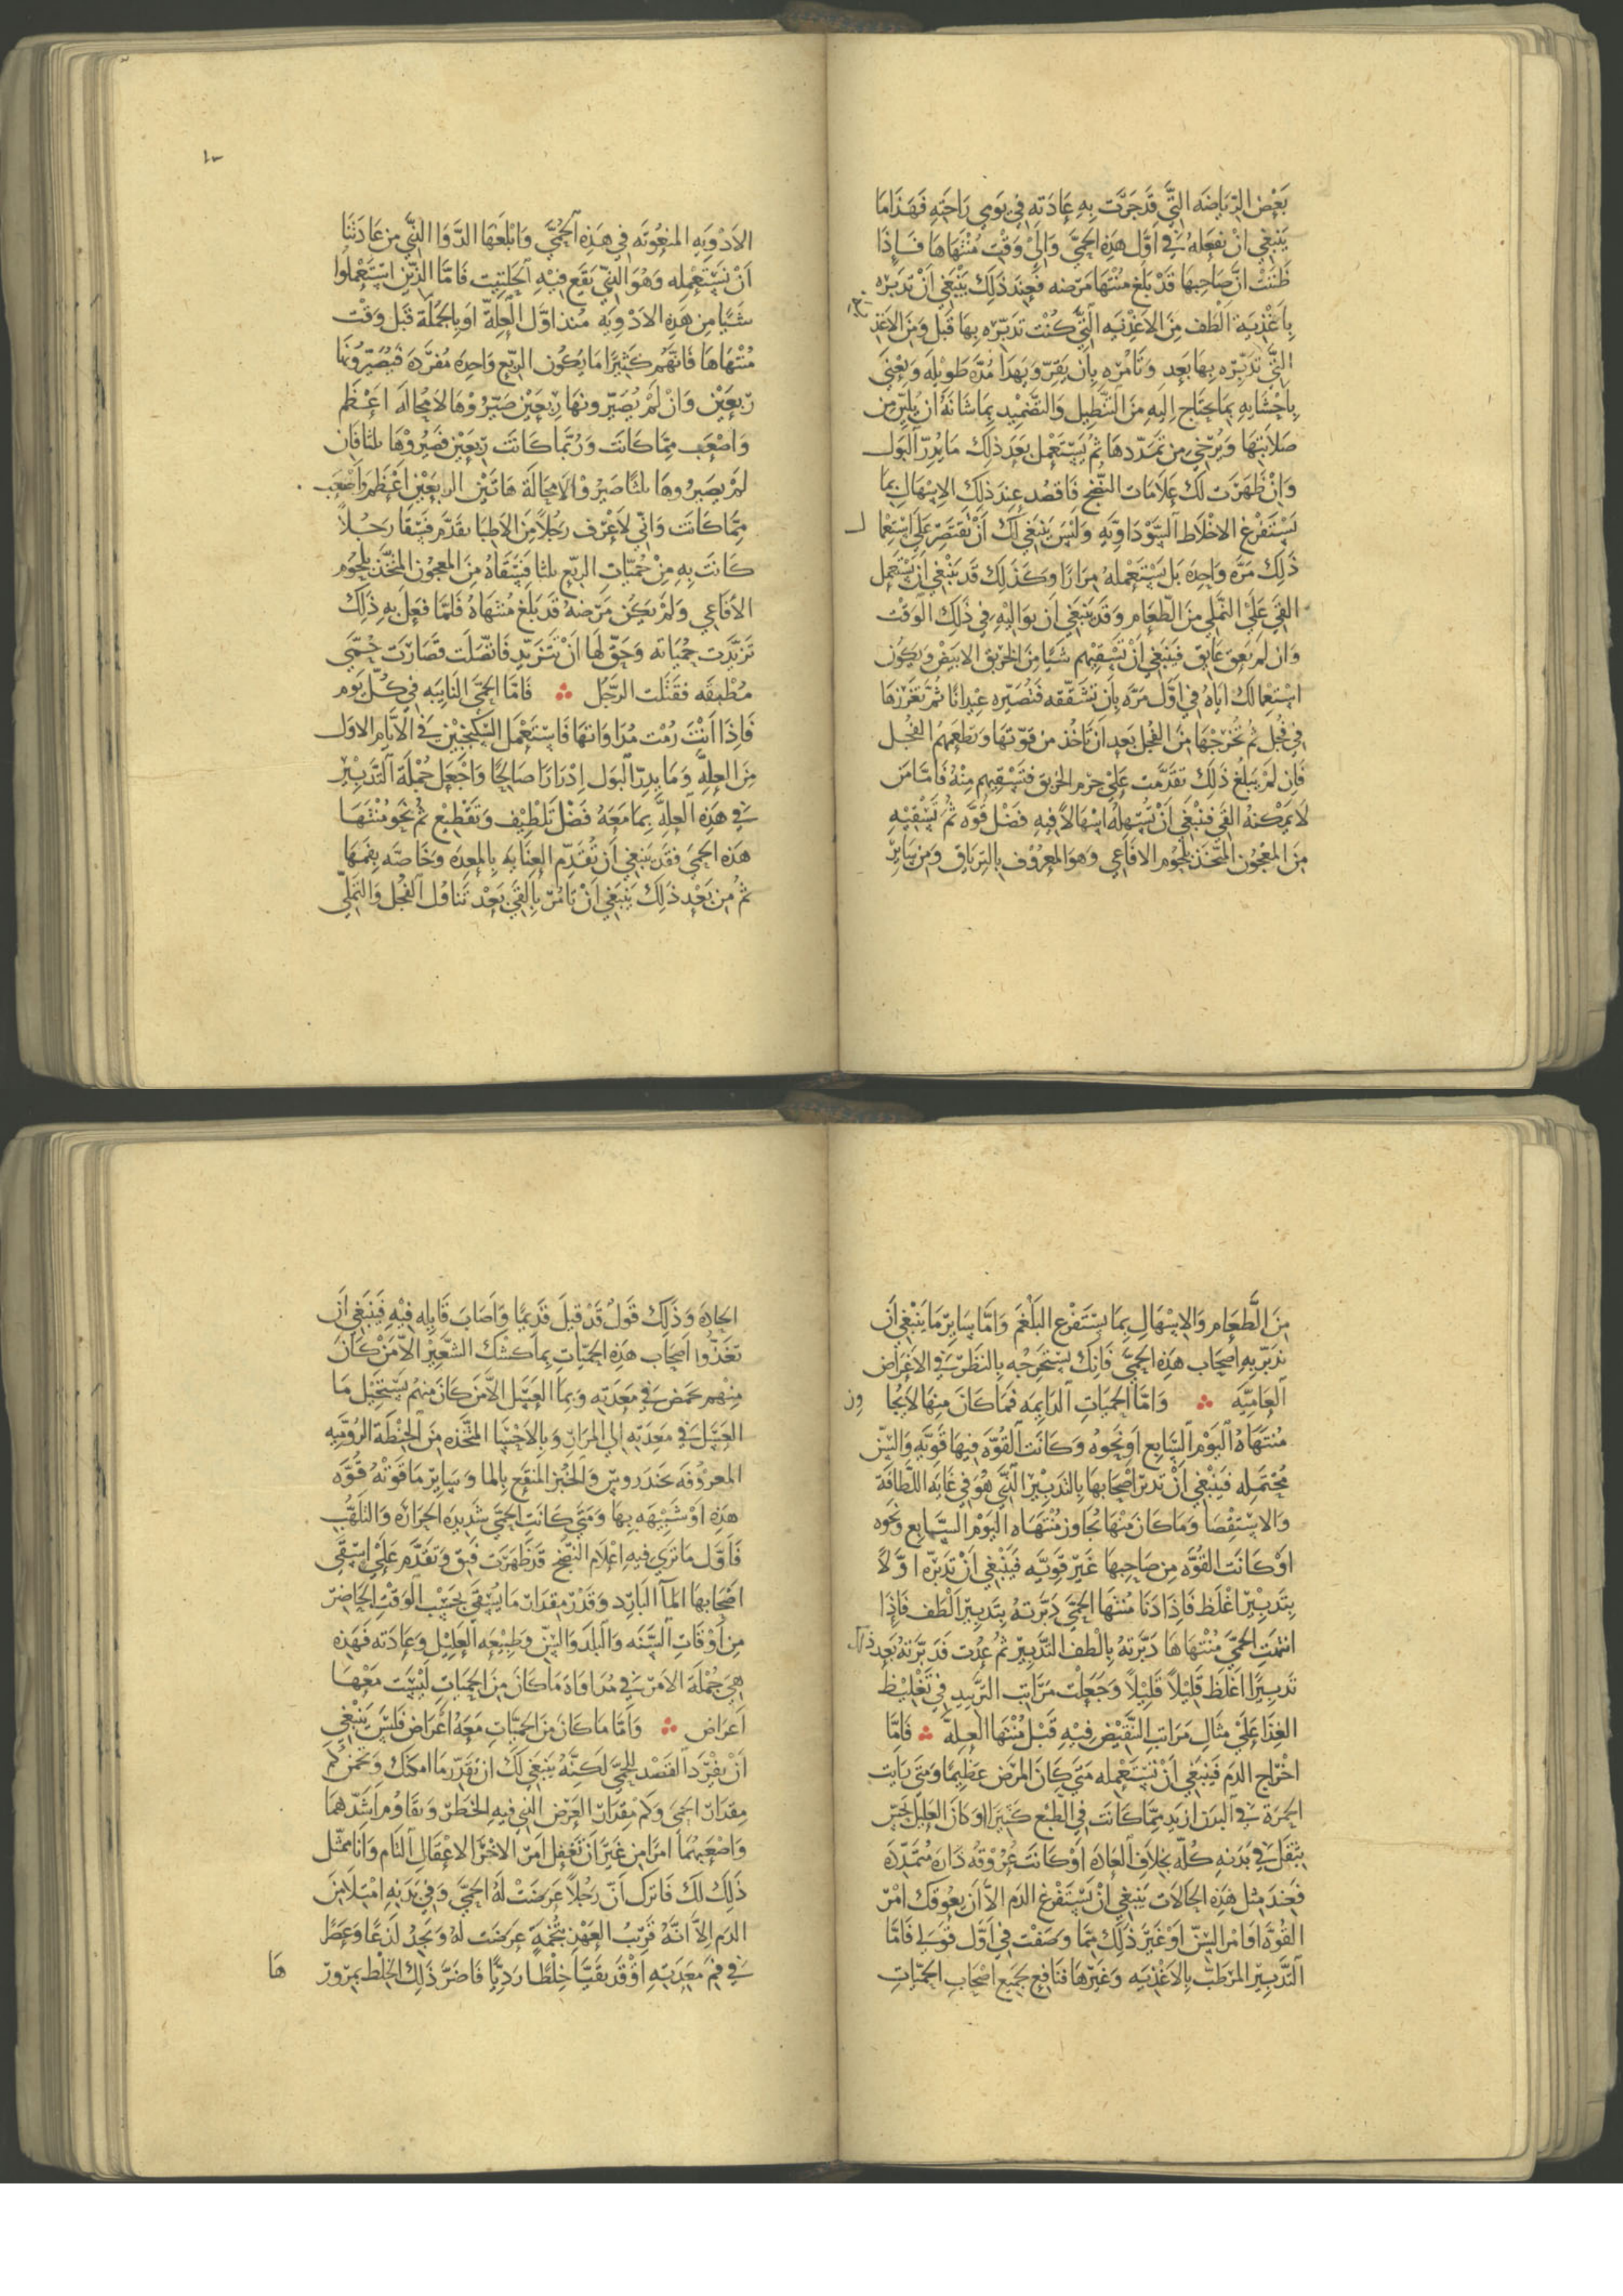 بَعْض الرِّيَاضَه الَّتِي قَد جَرَت بِهِ عَادَته فِي يَومِي رَاحَتِهِ فَهَذَا مَا
يَنبَغِي اَنْ تفعَلهُ فِي اَوّل هَذِهِ الحُمَّي وَاِلَي وَقْت مُنْتَهَاهَا فَاِذَا
ظَنَنْتَ اَنَّ صَاحِبهَا قَدْ بَلَغ مُنْتَهَا مَرَضه فَعِند ذَلِكَ يَنْبَغِي اَنْ تدَبِّره
بِاَغْذِيَة اَلْطَف مِنَ الاَغْذِيَه الَّتِي كُنْت تدَبِّره بِهَا قَبْل وَمِنَ الاَغذِيَه
الَّتِي تدَبِّره بِهَا بَعد وَتَامُرَه بِاَن يَقِرّ وَيَهدَا مُدَّه طَوِيْلَه وَيعْنَي
بِاَحْشَايِهِ بِمَا يحتَاج اِلَيهِ مِنَ التَّنْطِيل وَالتَّضْمِيْد بِمَا شَانَهُ اَنْ يليِّن مِن
صَلاَبتِهَا وَيُرْخِي مِن تمَدّدهَا ثُمَّ يَسْتَعْمل بَعَدَ ذَلِكَ مَا يُدِرّ البَول
وَاِنْ ظَهَرَت لَكَ عَلاَمَات النُّضْج فَاقصُد عِنْدَ ذَلِكَ الاِسْهَالِ بِمَا
يَسْتَفْرغ الاخْلاَط السَّوْدَاوِيَّه وَلَيْسَ يَنْبَغِي لَكَ اَنْ تقتَصِر عَلَى اسْتِعْمَال
ذَلِكَ مَرّه وَاحِدَه بَل يَسْتَعْملهُ مِرَارًا وَكَذَلِكَ قَد يَنْبَغِي اَنْ يَسْتَعْمل
القَي عَلَي التَّمَلِي مِنَ الطَّعَام وَقَد يَنبَغِي اَن يوَالِيْهِ فِي ذَلِكَ الوَقْت
وَاِن لم يَعُق عَايِق فَينبَغِي اَنْ تَسْقيهم شَيًا مِنَ الخربق الابيَض وَيكون
اسْتِعْمالكَ اِيَاهُ فِي اَوَّل مَرَّه بِاَن تشَقّقه فَتُصَيّره عِيدَانًا ثُمَّ تغرزهَا
فِي فُجل ثُمَّ تُخرجهَا مِنَ الفُجل بَعد اَن تَاخُذ مِن قوّتهَا وَتطعَمهم الفُجل
فَاِن لَمْ يَبلُغ ذَلِكَ تقَدَّمْت عَلَي جِرم الخربق فتَسْقيهم مِنْهُ فَاَمَّا مَن
لاَ يمْكنهُ القَي فَينْبَغِي اَنْ تُسْهِلهُ اِسْهَالاً فِيهِ فَضْل قُوَّه ثُمَّ تَسْقيْهِ
مِنَ المعجُون المتَّخَذ بِلحُوم الافَاعِي وَهوَ المعرُوف بِالترياق وَمِن سَايِر
الاَدْوِيَهِ المنعُوتَه فِي هَذِهِ الحُمَّي وَابلغهَا الدَّوَا الَّذِي مِن عَادَتنَا
اَنْ نَسْتَعْمِله وَهُوَ الَّذِي يَقَع فِيْهِ الحِلتِيت فَاَمَّا الَّذِين اسْتَعْمَلُوا
شَيًا مِن هَذِهِ الادْوِيَه مُنذ اوّل العِلّة اَو بِالجُملَة قَبل وَقْت
مُنْتَهَاهَا فَاِنَّهُم كَثِيْرًا مَا يَكُون الربْع وَاحِدَة مُفرَدَة فَيُصَيّرُونَهَا
رِبعَيْن وَاِنْ لَمْ يُصَيّرونهَا رِبعَيْن صَيّرُوْهَا لاَمحَالَه اَعْظَم
وَاصْعَب مِمَّا كَانَت وَرُبَّمَا كَانَت رِبعَيْن فصَيروْهَا ثلثا فَاِن
لم يصَيروهَا ثلثًا صَيروْا لاَمحَالَة هَاتَيْن الربعَيْن اَعْظَم وَاَصْعَب
مِمَّا كَانَت وَاِنِّي لاَعْرِف رَجُلاً مِنَ الاَطِبّا تقَدَّم فَسَقَا رَجُلاً
كَانَت بِهِ مِنْ حُمّيَات الربْع ثلثا فَسَقَاهُ مِنَ المعجُون المتّخَذ بِلحُوم
الافَاعِي وَلَمْ يَكُن مَرَضهُ قَد بَلَغ مُنْتهَاهُ فَلَمَّا فَعَل بِهِ ذَلِكَ
تَزَيَّدَت حُميَاته وَحَقّ لَهَا اَنْ تتزَيّد فَاتّصَلَت فصَارَت حُمَّي
مُطْبِقَه فقتَلَت الرَّجُل ؞ فَامَّا الحُمَّي النَايِبَه فِي كُلّ يَوم
فَاِذَا اَنتَ رُمْت مُدَاوَاتهَا فَاسْتَعْمل السِّكنجبْيْن فِي الاَيَّام الاوَل
مِنَ العِلَّه وَمَا يدِرّ البَول اِدْرَارًا صَالِحًا وَاجْعَل جُمْلَة التَّدْبِيْر
فِي هَذِهِ العِلَّه بِمَا مَعَهُ فَضْل تَلْطِيْف وَتَقْطِيْع ثُمَّ نحو مُنْتَهَا
هَذِه الحمي فقَد يَنبَغِي اَنْ تُقَدِّم العِنَايَه بِالمعِدَه وَخَاصّه بِفمهَا
ثُمَّ مِن بَعْد ذَلِكَ يَنْبَغِي اَنْ تَامُرَ بِالقَي بَعْد تَناوُل الفُجل وَالتَّمَلِّي
مِنَ الطَّعَام وَالاِسْهَالِ بِمَا يسْتَفرغ البَلْغم وَامَّا سَايِر مَا يَنْبَغِي اَن
تدَبّر بِهِ اَصْحَاب هَذِه الحُمَّي فَاِنّكَ تسْتَخرجه بِالنَظَر فِي الاغْرَاض
العَامِيَّه ؞ وَامَّا الحُمّيَاتِ الدَايِمَه فَمَا كَانَ مِنهَا لاَ يجَاوِز
مُنتَهَاهُ اليَوْم السَّابِع اَو نَحوه وَكَانَت القُوَّه فِيهَا قَوِيَّه وَالسِّن
مُحْتَمله فَينبَغِي اَنْ تدبّر اصْحَابهَا بِالتَدبِيْر الَّذِي هُوَ فِي غَايَه اللَّطَافَة
وَالاسْتِقْصَا وَمَا كَانَ مِنْهَا يُجَاوِز مُنْتَهَاه اليَوْم السَّابِع وَنحوه
اَوْ كَانَت القُوَّه مِن صَاحِبهَا غَيْر قَوِيَّه فَيَنْبَغِي اَنْ تدَبّره اوَّلاً
بِتَدبِيْر اَغْلَظ فَاِذَا دَنَا مُنتهَا الحُمَّي دَبّرتهُ بِتَدبِيْر اَلْطَف فَاِذَا
انتهَت الحُمَّي مُنْتَهَاهَا دَبَّرتهُ بِاَلْطَف التَّدْبِيْر ثُمَّ عُدْت فَدَبّرتهُ بَعد ذَلِكَ
تَدبِيْرًا اَغْلَظ قَلِيْلاً قَلِيْلاً وَجَعَلْت مَرَاتِب التَزيِيد فِي تَغلِيْظ
الغِذَا عَلَي مِثَال مَرَاتِب النَّقِيْض فِيْهِ قَبْل مُنْتهَا العِلَّه ؞ فَامَّا
اخْرَاج الدَم فَيَنْبَغِي اَنْ تَسْتَعْمله مَتَي كَانَ المرَض عَظِيمًا وَمَتَي رَايت
الحُمْرَة فِي البَدَن اَزيَد مِمَّا كَانَت فِي الطَّبْع كَثِيْرًا اَو كَانَ العَلِيل يُحِس
بثِقَل فِي بَدَنِهِ كُلّه بِخِلاَف العَادَه اَوْ كَانَت عُرُوْقهُ دَارّه مُتمَدّدَه
فَعِندَ مِثل هَذِه الحَالاَت يَنبَغِي اَنْ تَسْتَفْرغ الدَم الاَّ اَن يعُوقكَ اَمْر
القُوَّه اَوْ امْر السِّن اَوْ غَيْر ذَلِكَ مِمَّا وَصَفْت فِي اَوَّل قَولِي فَامَّا
التَّدْبِيْر المرَطِّب بِالاَغْذِيَه وَغَيْرهَا فنَافع لجَمِيْع اصْحَاب الحُمّيَات
الحَادّه وَذَلِكَ قَولٌ قَدْ قِيلَ قَدِيمًا وَاَصَابَ قَايِله فِيْهِ فَيَنبَغِي اَنْ
تغَذُّوا اَصْحَاب هَذِه الحُمّيَات بِمَا كشْك الشَّعِيْر الاَّ مَنْ كَانَ
مِنْهم يحمض فِي مَعِدَتِهِ وَبِمَا العَسَل الاَّ مَنْ كَانَ مِنهُم يَسْتَحِيْل مَا
العَسَل فِي مَعِدَتِهِ اِلَى المرَار وَبِالاَحْسَا المتّخَذَه مِنَ الحِنْطَة الرُّوْمِيَّه
المعرُوْفَه بخَندَروس وَالخُبْز المنقَع بِالمَا وَسَايِر مَا قوّتهُ قُوَّه
هَذِه اَوْ شَبِيْهَه بِهَا وَمَتَي كَانَتِ الحُمَّي شَدِيدَه الحَرَارَه وَالتَّلَهُّب
فَاَوَّل مَا تَرَي فِيهِ اعْلاَم النُّضْج قَد ظَهَرَت فَثِق وَتَقَدَّم عَلَي اَنْ تسْقَي
اصْحَابهَا المآ البَارِد وَقَدّر مِقدَار مَا يُسْقَي بِحَسَب الوَقْتِ الحَاضِر
مِن اَوْقَاتِ السَّنَه وَالبلَد وَالسِّن وَطَبِيْعَه العَلِيْل وَعَادَته فَهَذِه
هِيَ جُمْلَة الامْر فِي مُدَاوَاه مَا كَانَ مِنَ الحُمّيَات لَيْسَت مَعهَا
اَعْرَاض ؞ وَامَّا مَا كَانَ مِنَ الحُمّيَات مَعَهُ اَعْرَاض فَلَيْسَ يَنْبَغِي
اَنْ يفْرَد القَصْد لِلحُمَّي لَكِنَّهُ يَنبَغِي لَكَ اَنْ تقَدّر مَا اَمكَنَك وَتخمّن كَم
مِقدَار الحُمَي وَكَم مِقدَار العَرَض الَّذِي فِيهِ الخَطَر وَتقَاوم اَشَدّهُمَا
وَاَصْعَبهُمَا امرًا مِن غَيْرِ اَنْ تغفِل امر الاخَرَ الاغْفَالِ التَام وَاَنَا ممَثّل
ذَلِكَ لَكَ فَانزِل اَنّ رَجُلاً عَرَضَتْ لَهُ الحُمَّي وَفِي بَدَنِهِ امتِلاَ مِنَ
الدَم اِلاَّ اَنَّهُ قَرِيْبُ العَهْدِ بتُخمَةٍ عَرَضَت لهُ وَيَجِدُ لَذْعًا وَعَصْرًا
فِي فَم مَعِدَتِهِ اَوْ قَد يقَيّا خِلْطًا رَدِيًا فَاضَرَّ ذَلِكَ الخِلْط بمرُور
هَا